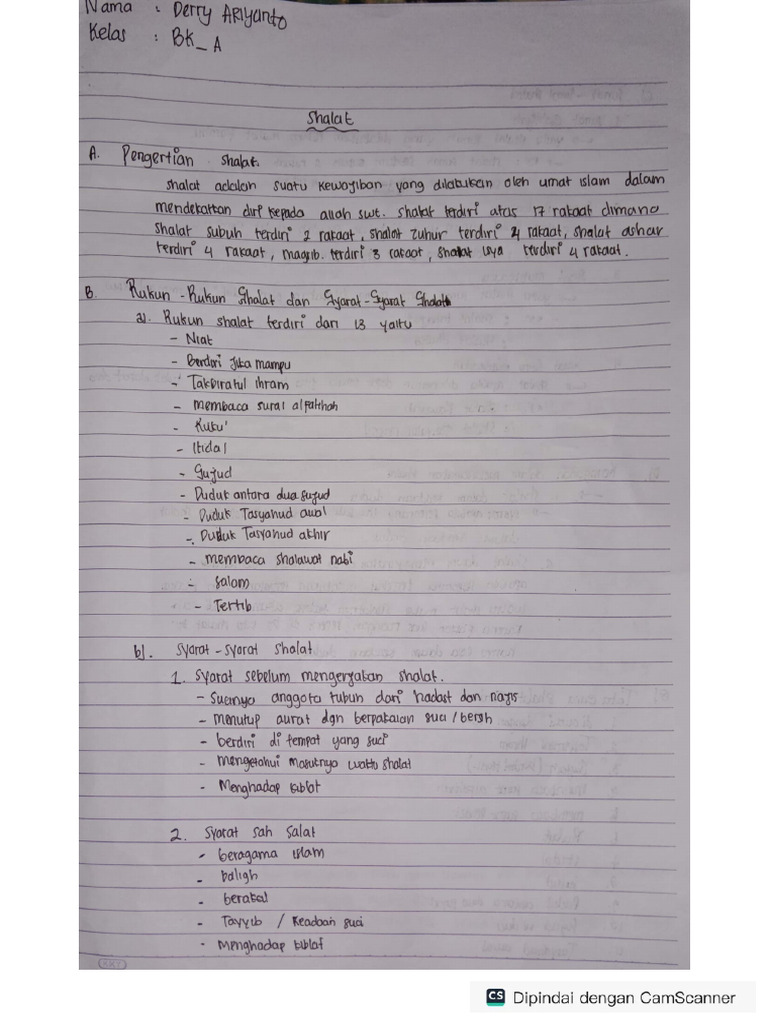 Nama : Derry ARIyanto
Kelas : BK_A
Shalat
A. Pengertian shalat.
shalat adalah suatu kewajiban yang dilakukan oleh umat islam dalam
mendekatkan diri kepada allah swt. shalat terdiri atas 17 rakaat dimana
shalat subuh terdiri 2 rakaat, shalat zuhur terdiri 4 rakaat, shalat ashar
terdiri 4 rakaat, magrib. terdiri 3 rakaat, shalat isya terdiri 4 rakaat.
B. Rukun-Rukun Shalat dan Syarat-Syarat Shalat
a). Rukun shalat terdiri dari 13 yaitu
- Niat
- Berdiri Jika mampu
- Takbiratul ihram
- membaca surat alfatihah
- Ruku'
- Itidal
- Sujud
- Duduk antara dua sujud
- Duduk Tasyahud awal
- Duduk Tasyahud akhir
- membaca shalawat nabi
- Salam
- Tertib
b). Syarat-syarat shalat
1. Syarat sebelum mengerjakan shalat.
- Sucinya anggota tubuh dari hadast dan najis
- menutup aurat dgn berpakaian suci/bersih
- berdiri di tempat yang suci
- mengetahui masuknya waktu shalat
- Menghadap kiblat
2. Syarat sah Salat
- beragama islam
- baligh
- berakal
- Tayyib / Keadaan suci
- Menghadap kiblat
CS Dipindai dengan CamScanner